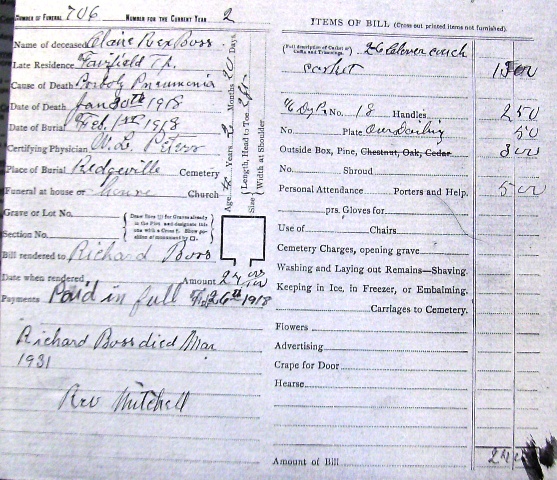 NUMBER OF FUNERAL 706 NUMBER FOR THE CURRENT YEAR 2
Name of deceased Claire Rex Boss
Late Residence Fairfield TP.
Cause of Death Probably Pneumonia
Date of Death Jan 30th 1918
Date of Burial Feb. 1st 1918
Certifying Physician W. L. Peters
Place of Burial Ridgeville Cemetery
Funeral at house or Church
Grave or Lot No.
Section No.
Bill rendered to Richard Boss
Date when rendered Amount
Payments Paid in full 26th 1918
Richard Boss died Mar
1931
Rev Mitchell
Age Years Months Days
Size Length, Head to Toe 2 ft
Width at Shoulder
ITEMS OF BILL (Cross out printed items not furnished).
(Full description of Casket or Coffin and Trimmings.)
casket 15 00
No. 18 Handles 2 50
No. Plate Our Darling 50
Outside Box, Pine, Chestnut, Oak, Cedar 3 00
No. Shroud
Personal Attendance Porters and Help. 5 00
prs. Gloves for
Use of Chairs
Cemetery Charges, opening grave
Washing and Laying out Remains—Shaving.
Keeping in Ice, in Freezer, or Embalming.
Carriages to Cemetery.
Flowers
Advertising
Crape for Door
Hearse
Amount of Bill